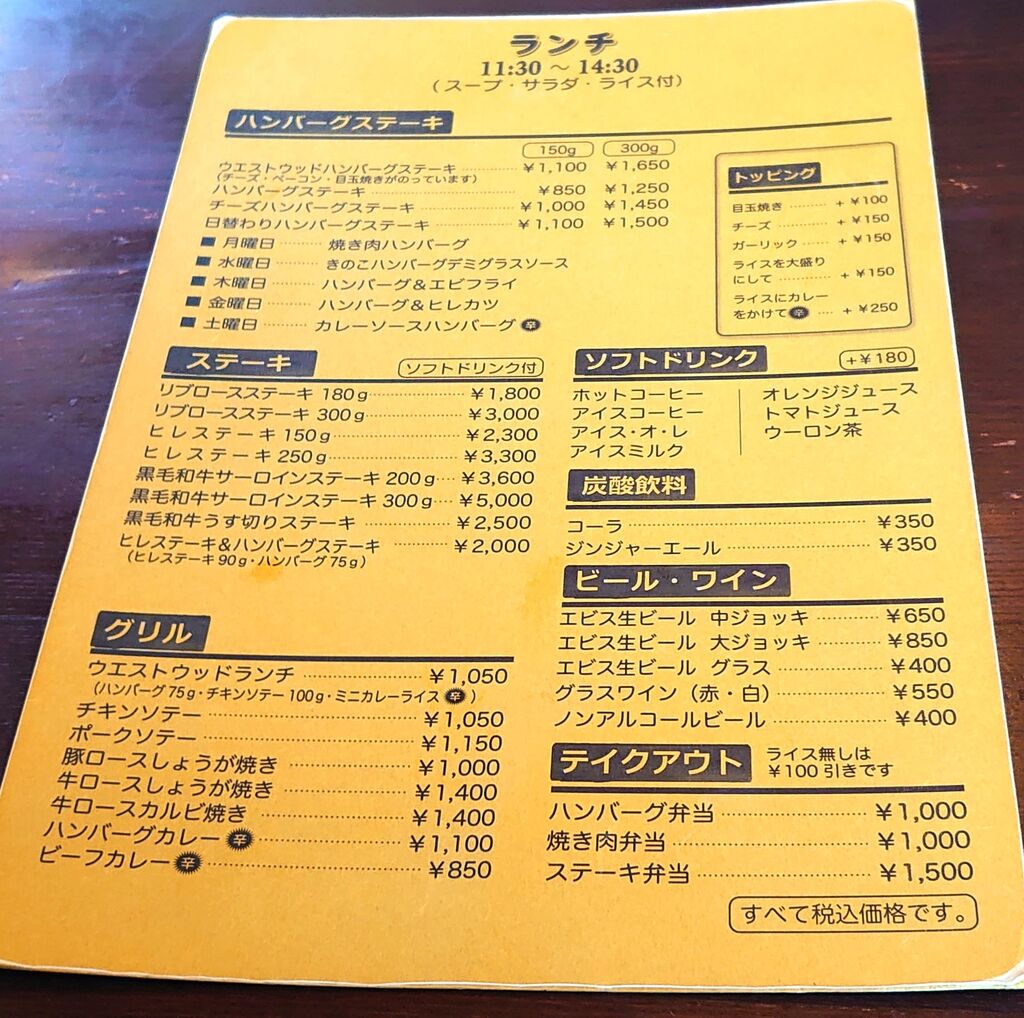 ランチ
11:30 ～ 14:30
（スープ・サラダ・ライス付）
ハンバーグステーキ
150g 300g
ウエストウッドハンバーグステーキ ¥1,100 ¥1,650
（チーズ・ベーコン・目玉焼きがのっています）
ハンバーグステーキ ¥850 ¥1,250
チーズハンバーグステーキ ¥1,000 ¥1,450
日替わりハンバーグステーキ ¥1,100 ¥1,500
■ 月曜日 ……… 焼き肉ハンバーグ
■ 水曜日 ……… きのこハンバーグデミグラスソース
■ 木曜日 ……… ハンバーグ＆エビフライ
■ 金曜日 ……… ハンバーグ＆ヒレカツ
■ 土曜日 ……… カレーソースハンバーグ 辛
トッピング
目玉焼き …… + ¥100
チーズ …… + ¥150
ガーリック …… + ¥150
ライスを大盛り
にして …… + ¥150
ライスにカレー
をかけて 辛 …… + ¥250
ステーキ ソフトドリンク付
リブロースステーキ 180g ¥1,800
リブロースステーキ 300g ¥3,000
ヒレステーキ 150g ¥2,300
ヒレステーキ 250g ¥3,300
黒毛和牛サーロインステーキ 200g ¥3,600
黒毛和牛サーロインステーキ 300g ¥5,000
黒毛和牛うす切りステーキ ¥2,500
ヒレステーキ&ハンバーグステーキ ¥2,000
（ヒレステーキ90g・ハンバーグ75g）
グリル
ウエストウッドランチ ¥1,050
（ハンバーグ75g・チキンソテー100g・ミニカレーライス 辛 ）
チキンソテー ¥1,050
ポークソテー ¥1,150
豚ロースしょうが焼き ¥1,000
牛ロースしょうが焼き ¥1,400
牛ロースカルビ焼き ¥1,400
ハンバーグカレー 辛 ¥1,100
ビーフカレー 辛 ¥850
ソフトドリンク +¥180
ホットコーヒー オレンジジュース
アイスコーヒー トマトジュース
アイス・オ・レ ウーロン茶
アイスミルク
炭酸飲料
コーラ ¥350
ジンジャーエール ¥350
ビール・ワイン
エビス生ビール 中ジョッキ ¥650
エビス生ビール 大ジョッキ ¥850
エビス生ビール グラス ¥400
グラスワイン（赤・白） ¥550
ノンアルコールビール ¥400
テイクアウト ライス無しは
¥100引きです
ハンバーグ弁当 ¥1,000
焼き肉弁当 ¥1,000
ステーキ弁当 ¥1,500
すべて税込価格です。